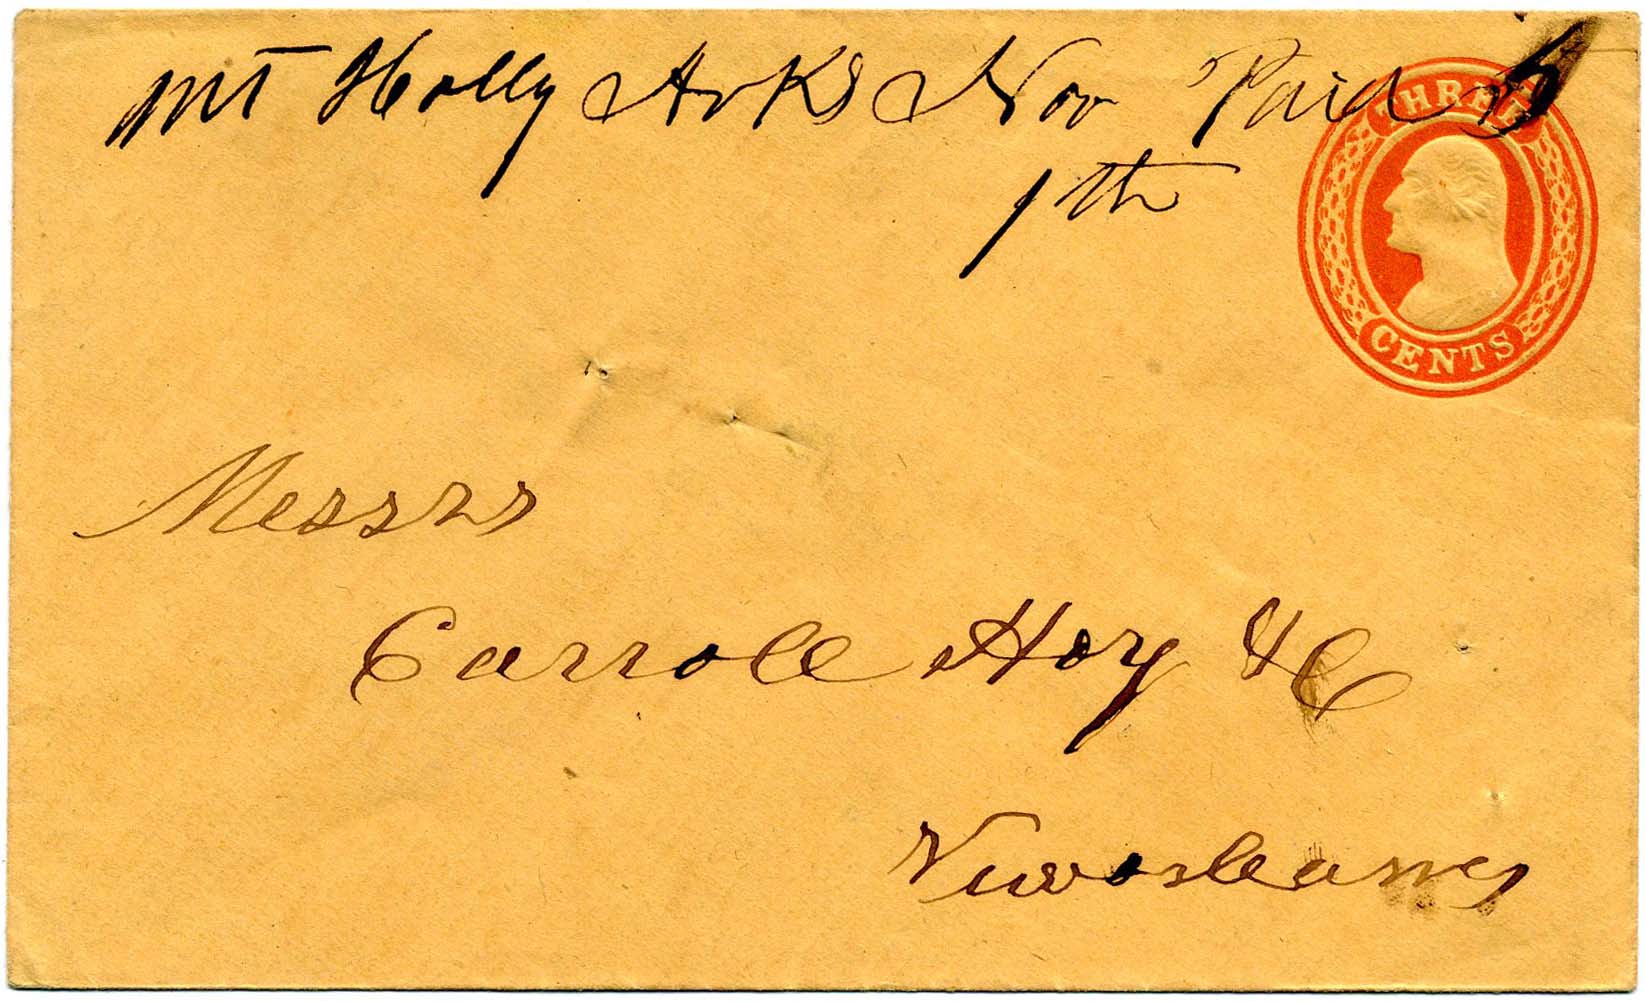 Mt Holly Arks Nov Paid 5
7th
THREE
CENTS
Messrs
Carroll Hoy & C
Neworleans